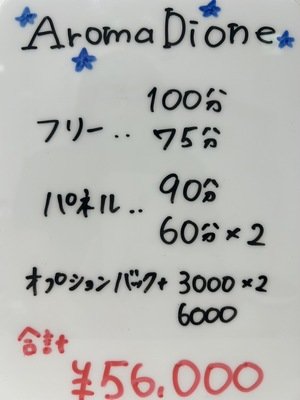 AromaDione
100分
フリー‥ 75分
90分
パネル‥
60分×2
オプションバック+ 3000×2
6000
合計
¥56,000